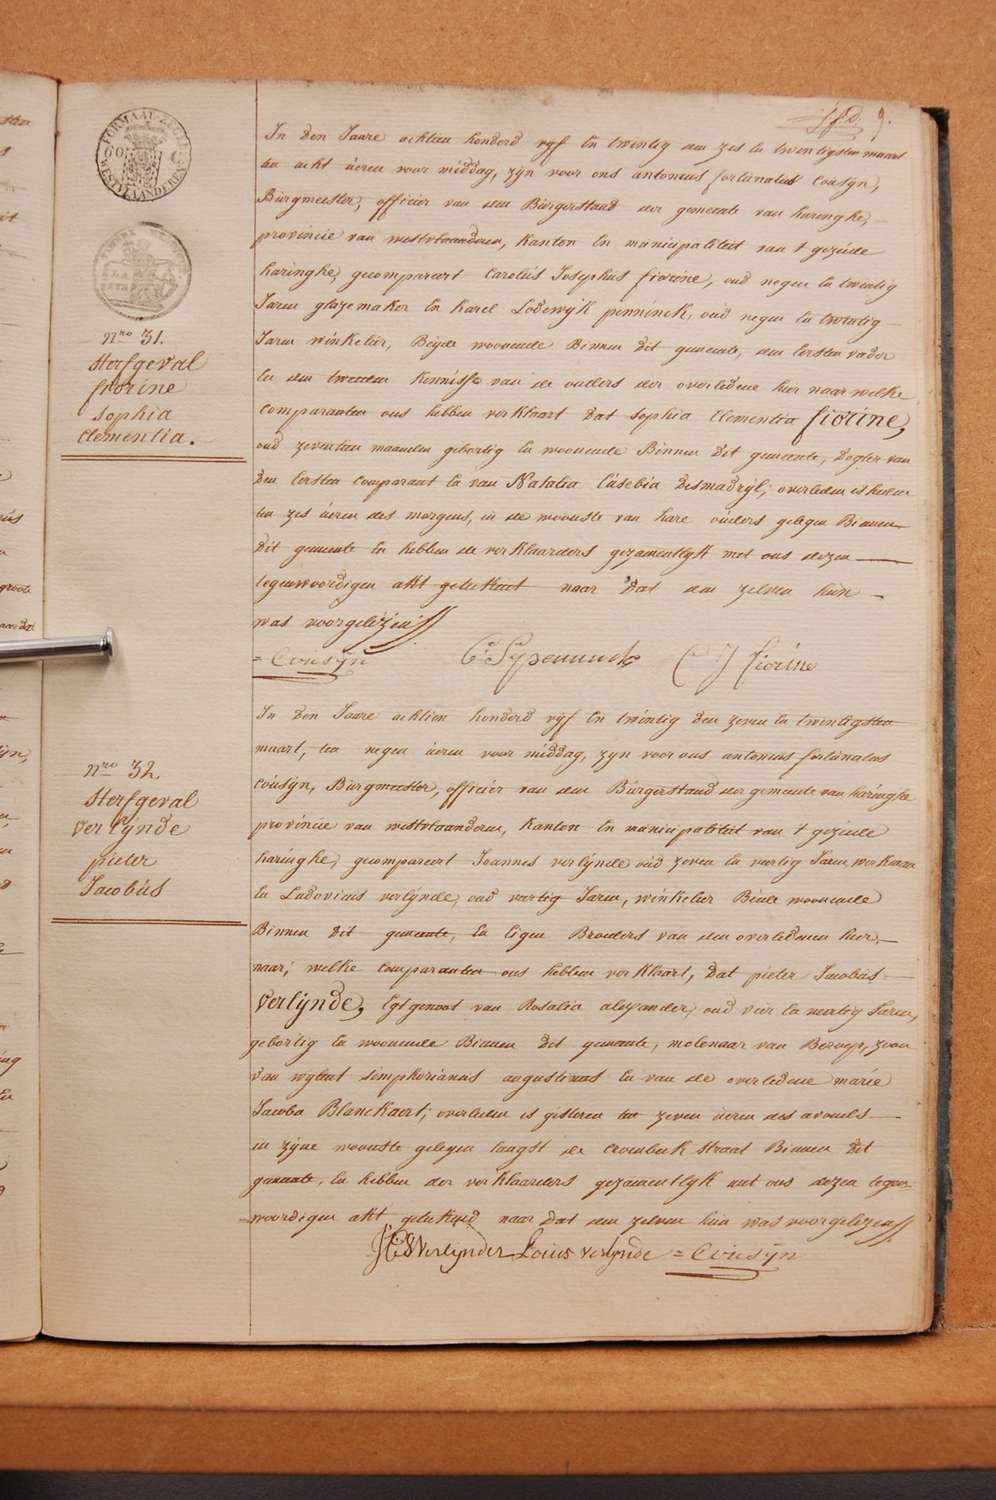 9.
FORMAAT ZEGEL
WESTVLAANDEREN
In den Jaare achtien honderd vyf en twintig den zes en twentigsten maart
ten acht úeren voor middag, zyn voor ons antonius fortúnatus Coúsÿn,
Búrgmeester, officier van den Búrgerstaud der gemeente van haringhe,
provincie van westvlaanderen, kanton en múnicipaliteit van 't gezeide
haringhe, gecompareert Carolús Josephús fiorine, oud negen en twintig
Jaren glazemaker en karel Lodewÿk penninck, oúd negen en twintig
Jaren winkelier, Beÿde woonende Binnen dit gemeente, den eersten vader
en den tweeden kennisse van de ouders der overledene hier naar welke
comparanten ons hebben verklaart dat Sophia Clementia fiorine,
oud zeventien maanden gebortig en woonende Binnen dit gemeente, dogter van
den eersten comparant en van Natalia Eúsebia Desmadrÿl; overleden is heden
ten zes úeren des morgens, in de woonste van hare oúders gelegen Binnen
dit gemeente en hebben de verklaarders gezamentlÿk met ons dezen
tegenwoordigen akt geteekent naar dat den zelven hún
was voorgelézen
= Coúsÿn
C J fiorine
nro 31.
Sterfgeval
fiorine
Sophia
Clementia.
In den Jaare achtien honderd vÿf en twintig den zeven en twintigsten
maart, ten negen úeren voor middag, zÿn voor ons antonius fortúnatus
Coúsÿn, Búrgmeester, officier van den Búrgerstaud der gemeente van haringhe
provincie van westvlaanderen, kanton en múnicipaliteit van 't gezeide
haringhe, gecompareert Joannes verlÿnde oúd zeven en veertig Jaren, werkman
en Ludovicus verlÿnde, oud veertig Jaren, winkelier Beide woonende
Binnen dit gemeente, en eigen Broeders van den overledenen hier
naar, welke comparanten ons hebben verklaart, dat pieter Jacobús
verlÿnde, Egtgenoot van Rosalia alexander, oud vier en veertig Jaren,
gebortig en woonende Binnen dit gemeente, molenaar van Beroep, zoon
van wÿlent simphorianus augustinus en van de overledene marie
Jacoba Blanckaert; overleden is gisteren ten zeven úeren des avonds
in zÿne woonste gelegen langst de Crombeek straat Binnen dit
gemeente, en hebben der verklaarders gezamentlÿk met ons dezen tegen-
woordigen akt geteekend naar dat den zelven hún was voorgelezen
Verlynde Loúis verlÿnde = Coúsÿn
nro 32.
Sterfgeval
verlÿnde
pieter
Jacobús